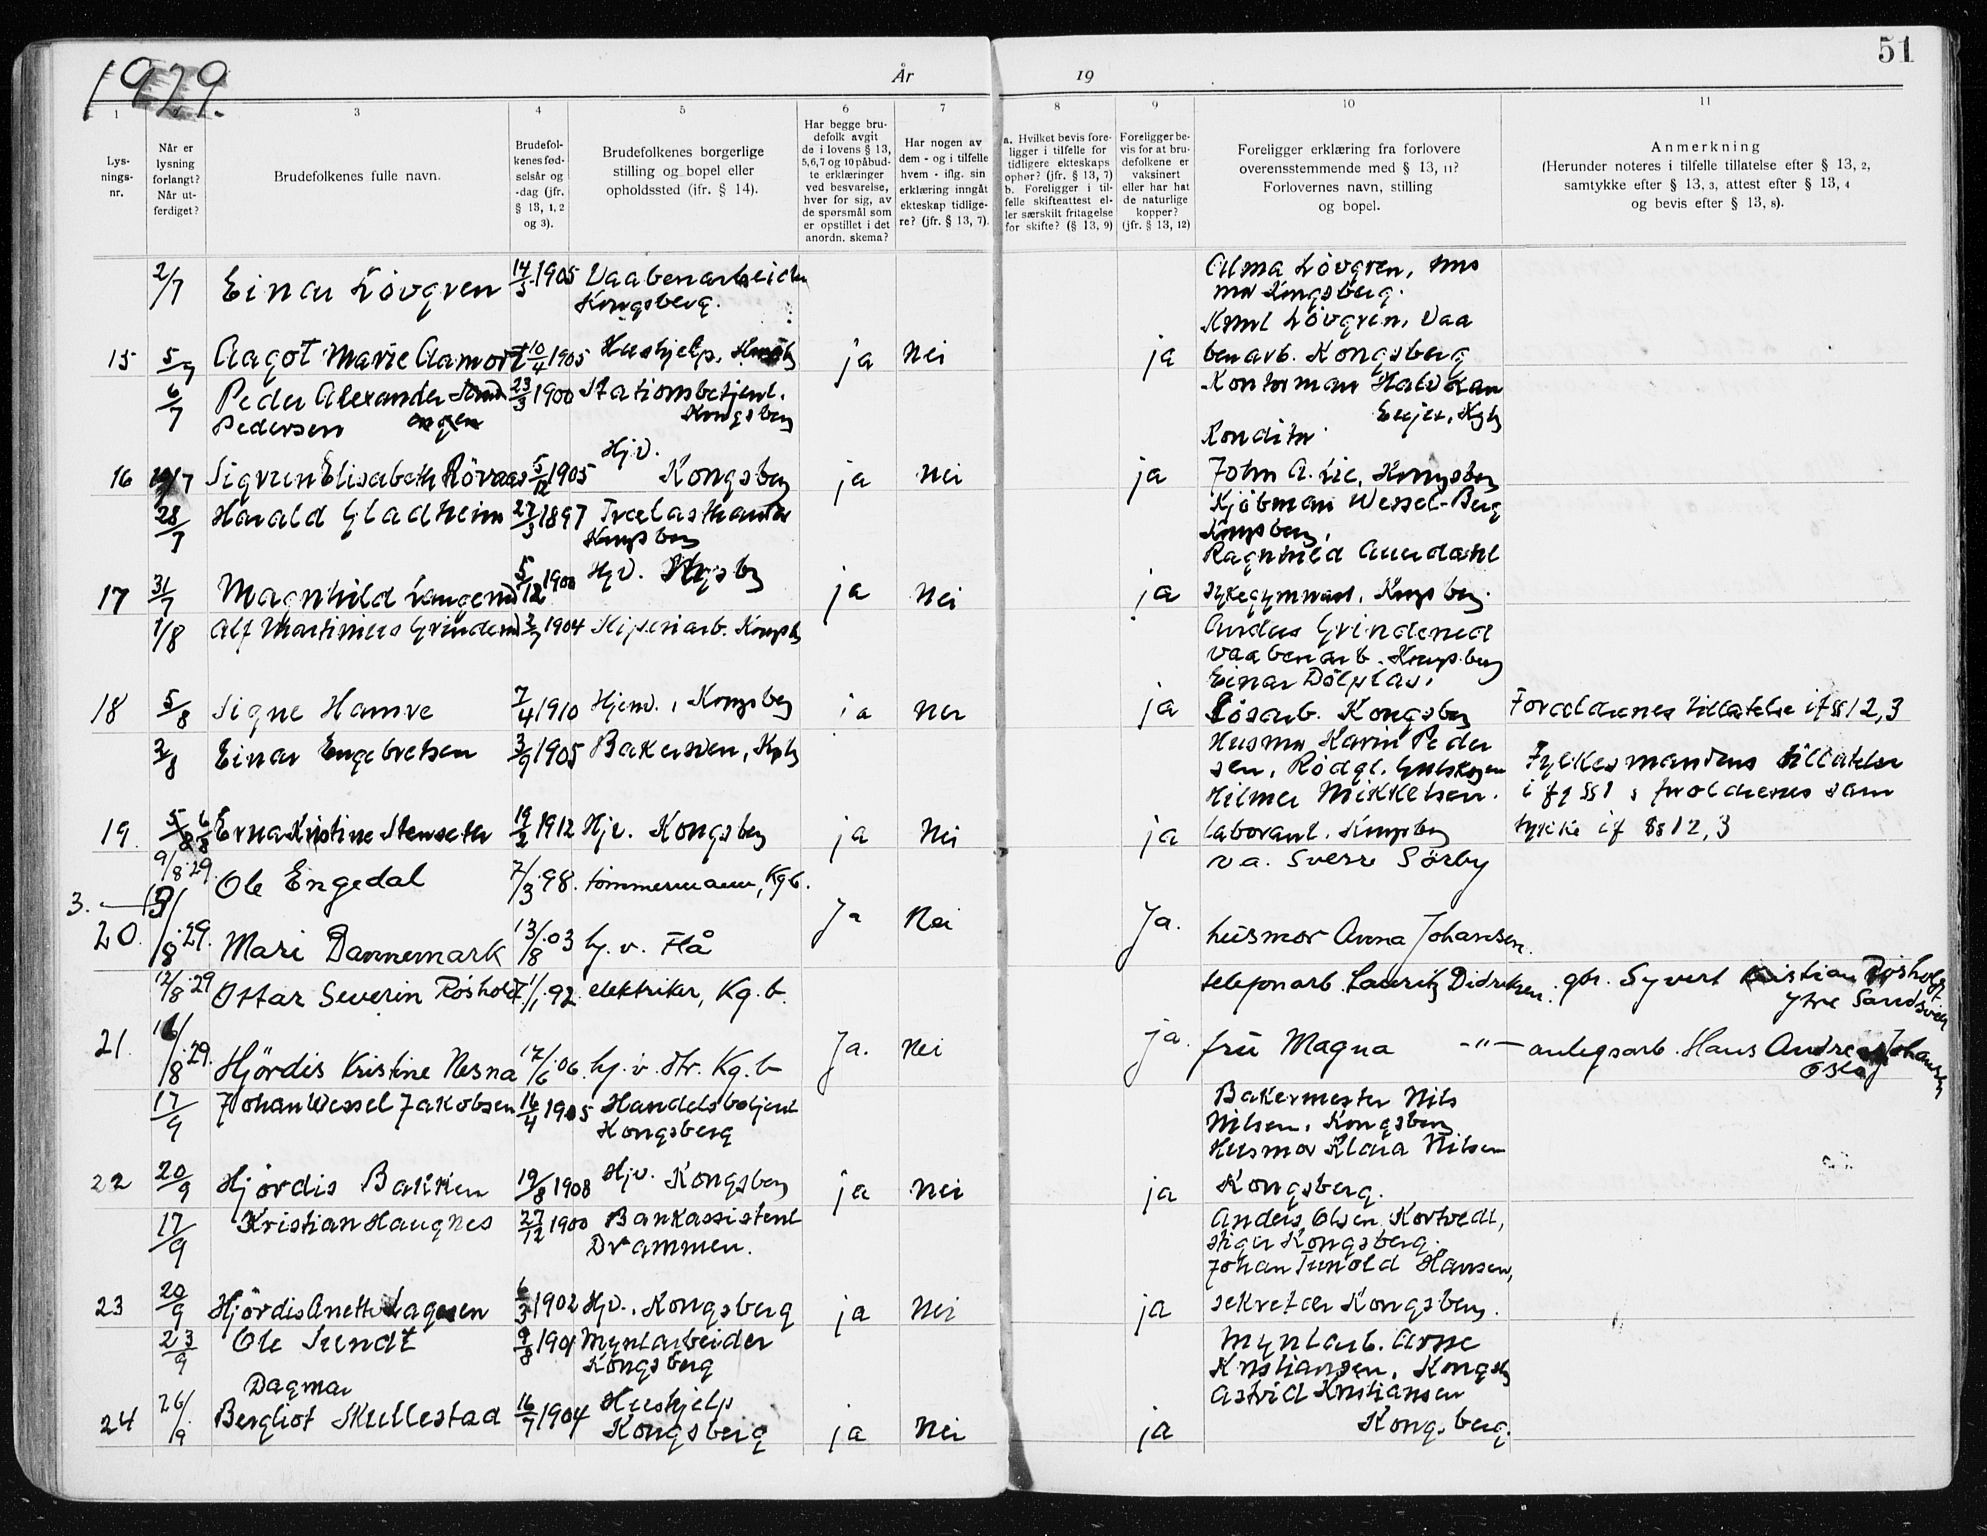 1929.
År
19
51
1
2
3
4
5
6
7
8
9
10
11
Lys-
nings-
nr.
Når er
lysning
forlangt?
Når ut-
ferdiget?
Brudefolkenes fulle navn.
Brudefol-
kenes fød-
selsår og
-dag (jfr.
§ 13, 1, 2
og 3).
Brudefolkenes borgerlige
stilling og bopel eller
opholdssted (jfr. § 14).
Har begge bru-
defolk avgit
de i lovens § 13,
5,6,7 og 10 påbud-
te erklæringer
ved besvarelse,
hver for sig, av
de spørsmål som
er opstillet i det
anordn. skema?
Har nogen av
dem - og i tilfelle
hvem - iflg. sin
erklæring inngåt
ekteskap tidlige-
re? (jfr. § 13, 7).
a. Hvilket bevis fore-
ligger i tilfelle for
tidligere ekteskaps
ophør? (jfr. § 13, 7)
b. Foreligger i til-
felle skifteattest el-
ler særskilt fritagelse
for skifte? (§ 13, 9)
Foreligger be-
vis for at bru-
defolkene er
vaksinert
eller har hat
de naturlige
kopper?
(jfr. § 13, 12)
Foreligger erklæring fra forlovere
overensstemmende med § 13, 11?
Forlovernes navn, stilling
og bopel.
Anmerkning
(Herunder noteres i tilfelle tillatelse efter § 13, 2,
samtykke efter § 13, 3, attest efter § 13, 4
og bevis efter § 13, 8).
2/7 Einar Lövgren 14/3 1905 Vaabenarbeider
Kongsberg.
Alma Lövgren, hus
mor Kongsberg.
Lövgren, Vaa
15 5/7 Aagot Marie Aamort 10/4 1905 Hushjelp, ja Nei ja benarb. Kongsberg
6/7 Peder Alexander
Pedersen engen 23/3 1900 Stationsbetjent.
Kongsberg
Kontorman Halvdan
Konditor
16 /7 Sigrun Elisabeth Röraas 5/12 1905 Hjv.
Kongsberg ja Nei ja John A. Lie, Kongsberg
28/7 Harald Gladheim 27/3 1897 Trælasthandler
Kongsberg
Kjöbman Wessel-Berg
Kongsberg,
Ragnhild
17 31/7 Magnhild 5/12 1900 Hjv. Kgsbg ja Nei ja sykegymnast, Kongsberg.
1/8 Alf Martinius Grindered 2/7 1904 arb. Kongsbg
Anders Grindered
vaabenarb. Kongsberg
Einar Dölplas,
18 5/8 Signe Hamre 7/4 1910 Hjemv., Kongsberg ja Nei ja Lösarb. Kongsberg Foreldrenes tillatelse if §§ 12, 3
2/8 Einar Engebretsen 3/9 1905 Bakersven, Kgbg
Husmor Karin Peder
sen,
Hilmer Mikkelsen.
Fylkesmandens tillatelse
i fg §§ 1 s foreldrenes sam
19. 5/8 6/8 Erna Kristine Stenseth 19/2 1912 Hjv. Kongsberg ja Nei ja laborant. Kongsberg tykke if §§ 12, 3
9/8 29. Ole Engedal 7/3 98. tømmermann, Kgb. va. Sverre Sörby
3.
20. /8 29. Mari Dannemark 13/8 03 hj. v. Flå Ja Nei Ja. husmor Anna Johansen.
12/8 29 Ottar Severin Røsholdt 1/1 92. elektriker, Kg.b. telefonarb. Lauritz Didriksen. gbr. Syvert Kristian Røsholdt
Ytre Sandsvær
21. 16/8 29. Hjördis Kristine Nesna 17/6 06. hj. v. str. Kg.b Ja. Nei ja. fru Magna -"- anlegsarb. Hans Andreas Johansen
Oslo
17/9 Johan Wessel Jakobsen 16/4 1905 Handelsbetjent
Kongsberg
Bakermester Nils
Nilsen, Kongsberg
Husmor Klara Nilsen
22 20/9 Hjördis Bakken 19/8 1908 Hjv. Kongsberg ja Nei ja Kongsberg.
17/9 Kristian Haugnes 27/12 1900 Bankassistent
Drammen.
Anders Olsen Kortvedt,
stiger Kongsberg.
Johan Tunold Hansen,
23 20/9 Hjördis Anette Lagesen 6/3 1902 Hjv., Kongsberg ja Nei ja sekretær Kongsberg.
23/9 Ole Sundt 9/8 1901 Myntarbeider
Kongsberg
Myntarb. Arne
Kristiansen, Kongsbg
Astrid Kristiansen
Kongsberg.
24 26/9 Dagmar
Bergliot Skullestad 16/7 1904 Hushjelp
Kongsberg ja Nei ja